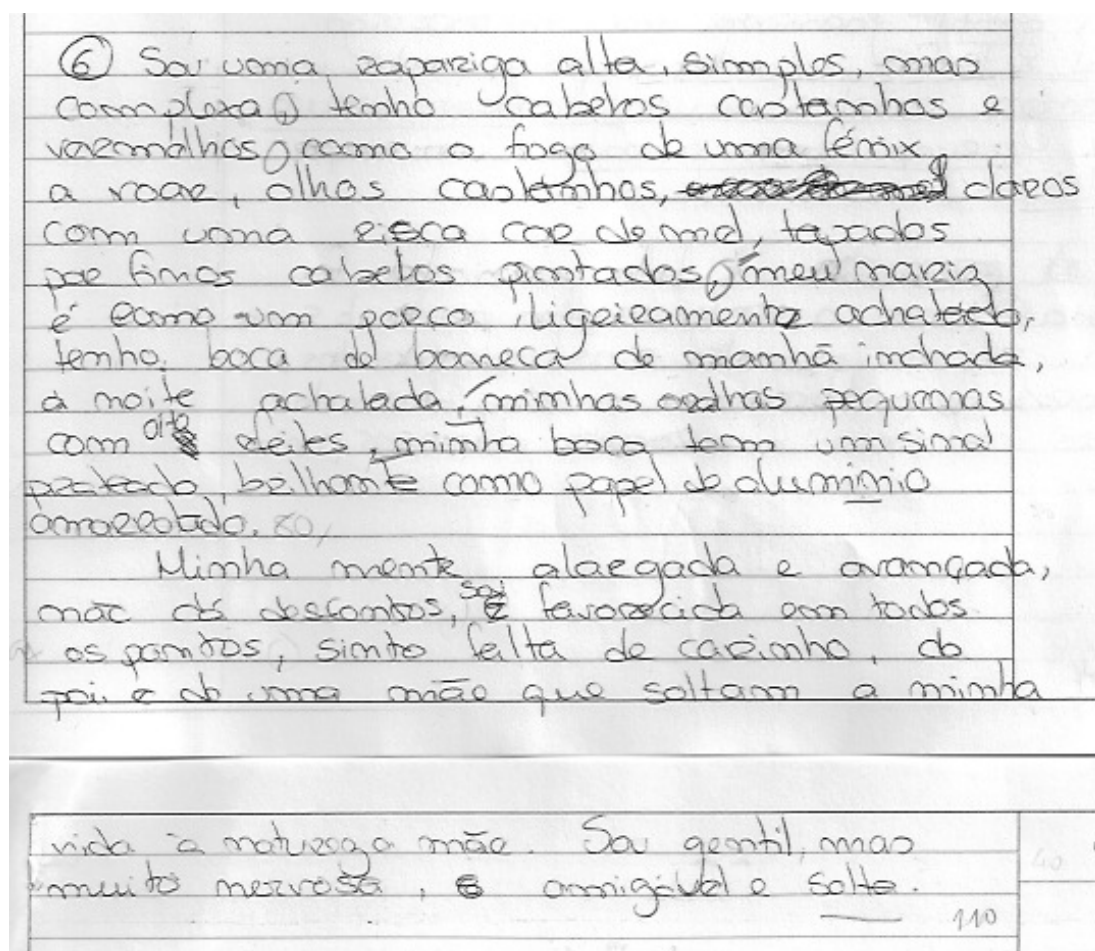 ⑥ Sou uma rapariga alta, simples, mas
complexa, tenho cabelos castanhos e
vermelhos, como o fogo de uma fénix
a voar, olhos castanhos, claros
com uma risca cor de mel, tapados
por finos cabelos pintados, meu nariz
é como um porco, ligeiramente achatado,
tenho boca de boneca de manhã inchada,
a noite achatada, minhas orelhas pequenas
com oito deles, minha boca tem um sinal
prateado, brilhante como papel de aluminio
amarrotado. 80,
Minha mente, alargada e avançada,
não dá descontos, sou favorecida em todos
os pontos, sinto falta de carinho, do
pai e de uma mãe que soltam a minha
vida à natureza mãe. Sou gentil, mas
muito nervosa, e amigável e solta.
110
40